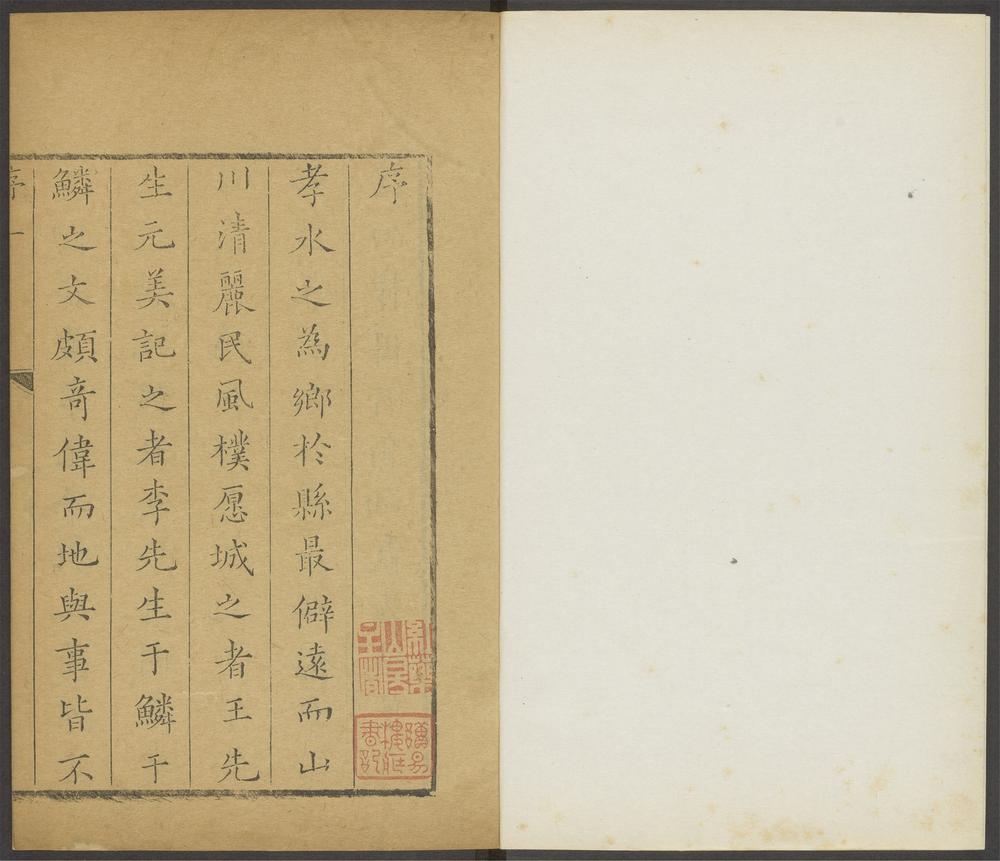 序
孝水之為鄉於縣最僻遠而山
川清麗民風樸愿城之者王先
生元美記之者李先生于鱗于
鱗之文頗奇偉而地與事皆不
序 一